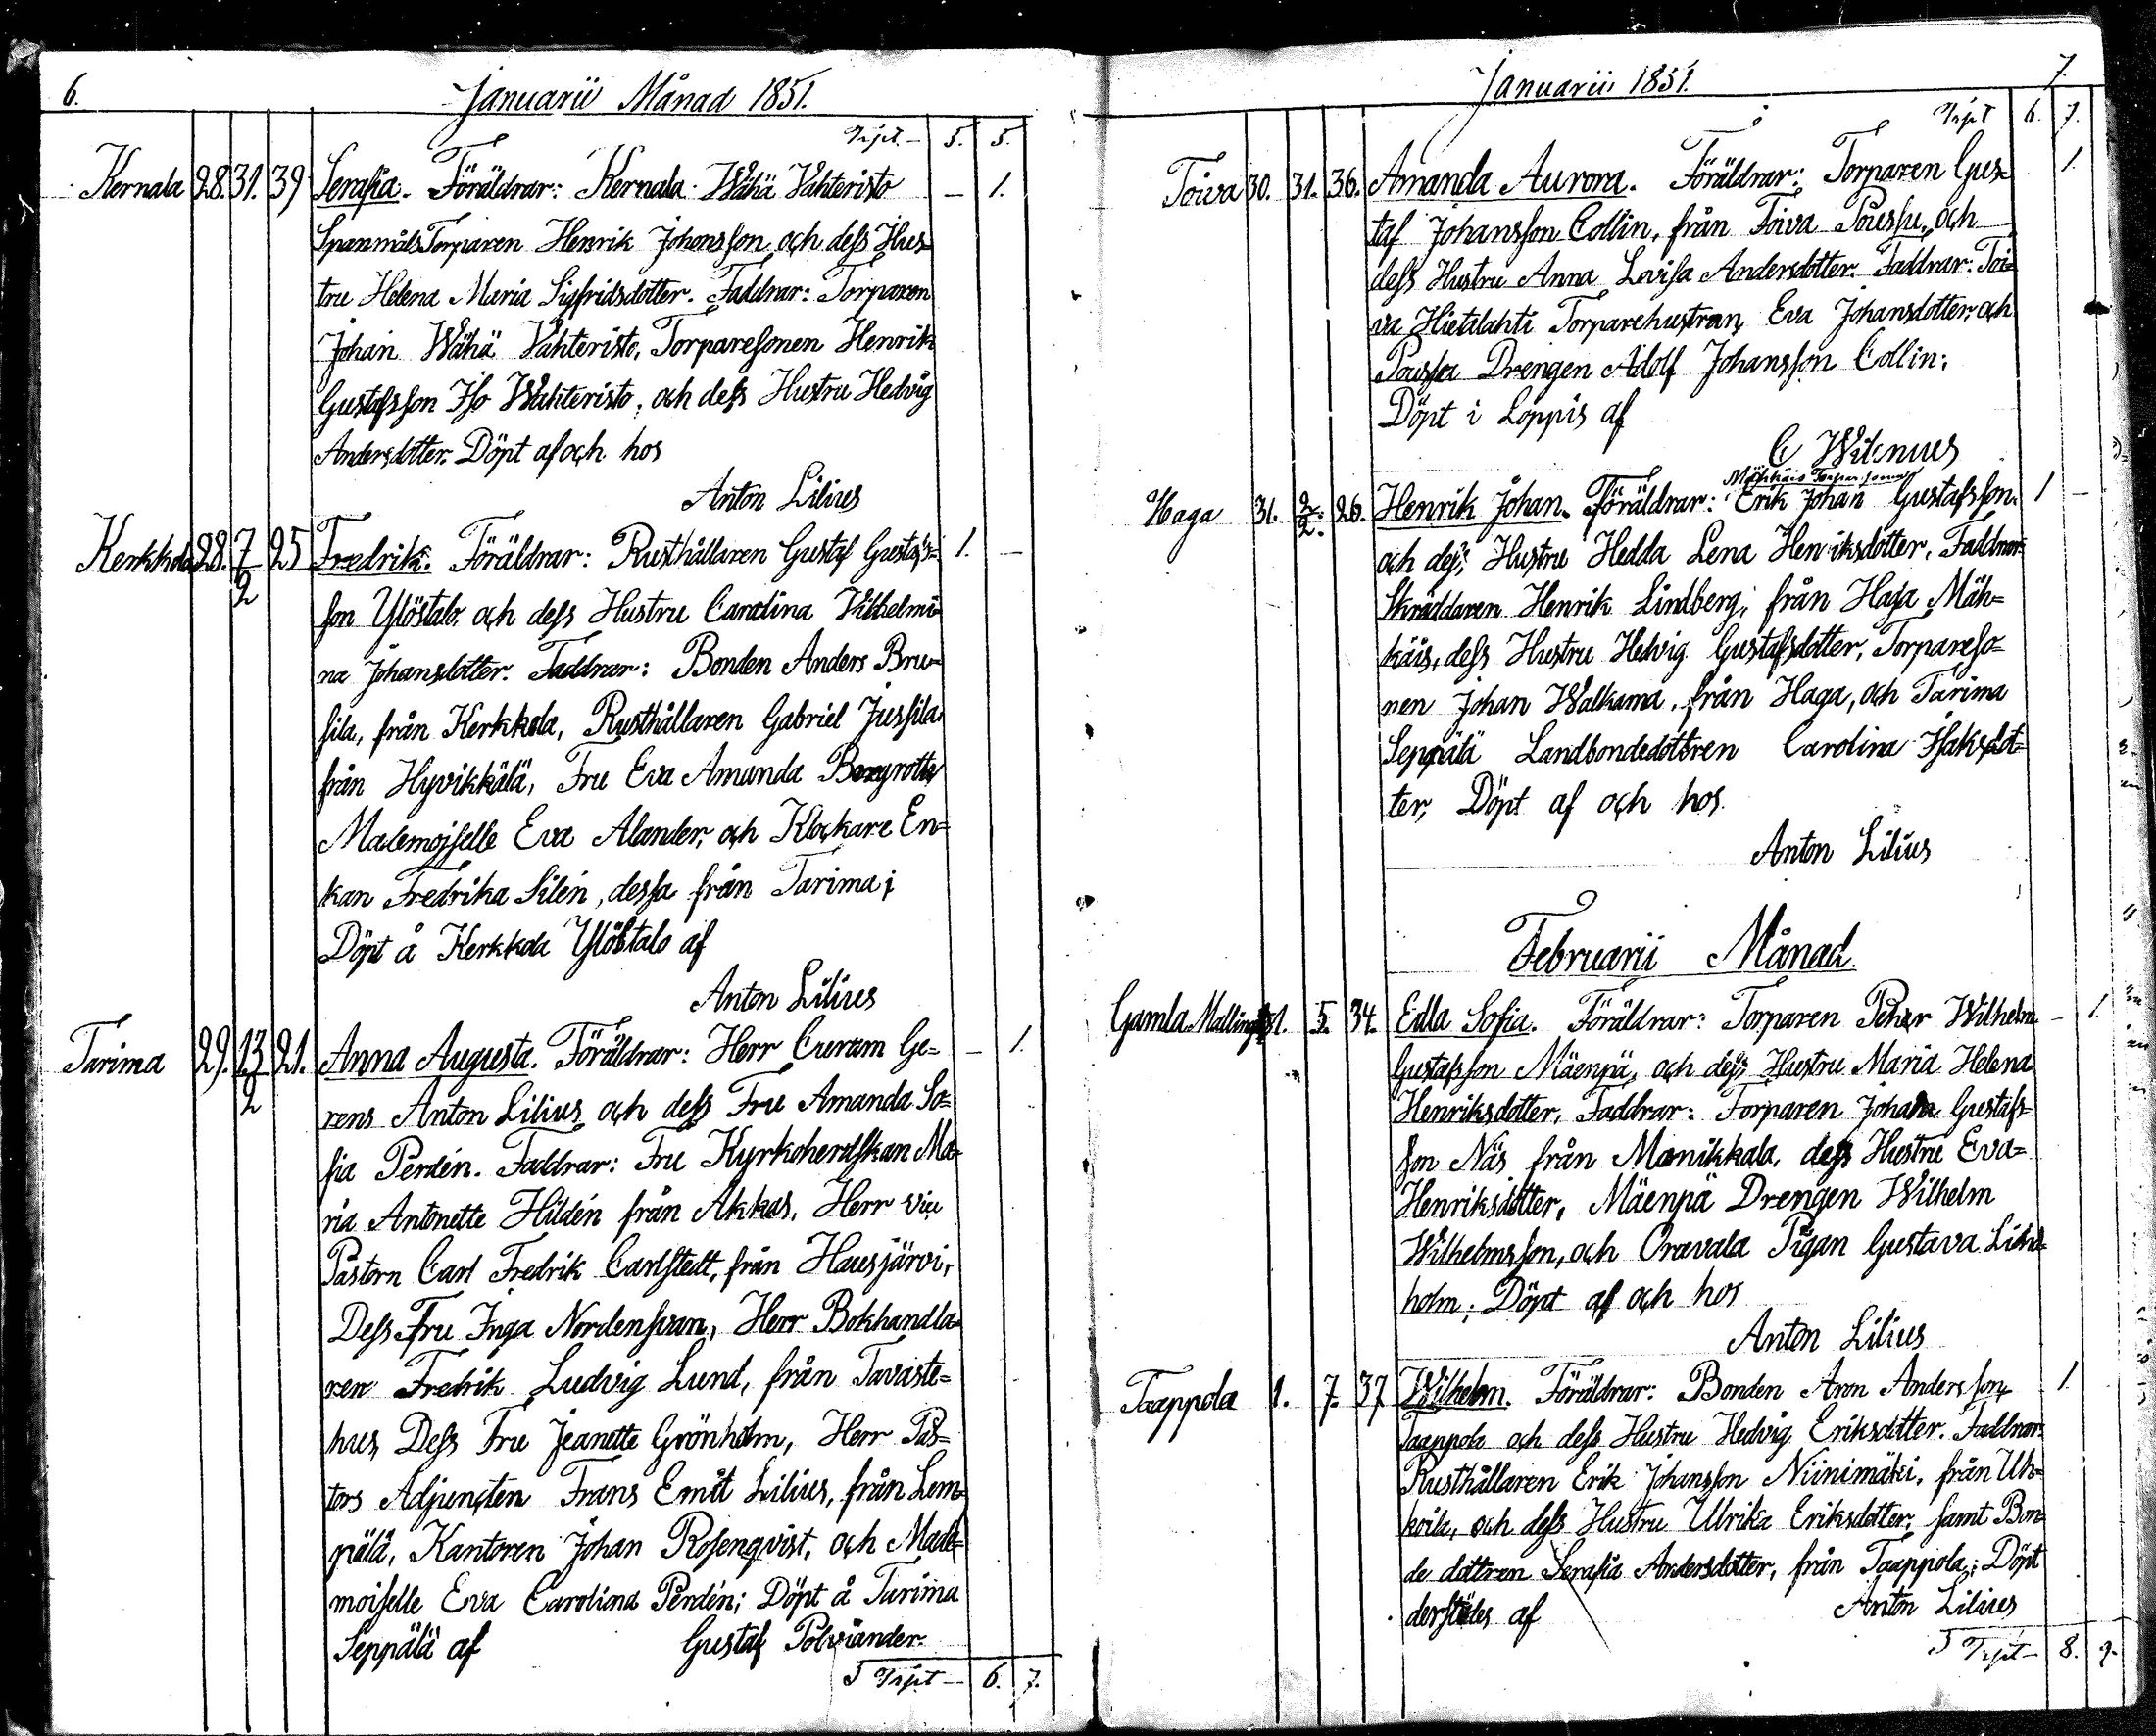 6.
Januarii Månad 1851.
Trspt. — 5. 5.
Kernala 28. 31. 39 Serafia. Föräldrar: Kernala Wähä Vahteristo — 1.
SpanmålsTorparen Henrik Johansson, och dess Hus-
tru Helena Maria Sigfridsdotter. Faddrar: Torparen
Johan Wähä Vahteristo, Torparesonen Henrik
Gustafsson Iso Wahteristo, och dess Hustru Hedvig
Andersdotter. Döpt af och hos
Anton Lilius
Kerkkola 28. 7/2 25 Fredrik. Föräldrar: Rusthållaren Gustaf Gustafs- 1. —
son Ylöstalo, och dess Hustru Carolina Vilhelmi-
na Johansdotter. Faddrar: Bonden Anders Bru-
sila, från Kerkkola, Rusthållaren Gabriel Jussila
från Hyvikkälä, Fru Eva Amanda Bergroth
Mademoiselle Eva Alander, och Klockare En=
kan Fredrika Silén, dessa från Tarima;
Döpt å Kerkkola Ylöstalo af
Anton Lilius
Tarima 29. 13/2 21. Anna Augusta. Föräldrar: Herr Curam Ge= — 1.
rens Anton Lilius och dess Fru Amanda So=
fia Perdén. Faddrar: Fru Kyrkoherdskan Ma-
ria Antonette Hildén från Akkas, Herr vice
Pastorn Carl Fredrik Carlstedt, från Hausjärvi,
Dess Fru Inga Nordensvan, Herr Bokhandla=
ren Fredrik Ludvig Lund, från Tavaste=
hus, Dess Fru Jeanette Grönholm, Herr Pas=
tors Adjuncten Frans Emil Lilius, från Lem=
pälä, Kantoren Johan Rosenqvist, och Made=
moiselle Eva Carolina Perdén; Döpt å Tarima
Seppälä af Gustaf Polviander.
Trspt — 6. 7.
7.
Januarii 1851.
Trspt 6. 7.
Toiva 30. 31. 36. Amanda Aurora. Föräldrar: Torparen Gus= 1.
taf Johansson Collin, från Toiva Poussu, och
dess Hustru Anna Lovisa Andersdotter. Faddrar: Toi=
va Hietalahti Torparehustrun Eva Johansdotter, och
Poussu Drengen Adolf Johansson Collin;
Döpt i Loppis af
C Widenius
Mähkäis Torparsonen
Haga 31. 2/2. 26. Henrik Johan. Föräldrar: Erik Johan Gustafsson 1 —
och dess Hustru Hedda Lena Henriksdotter, Faddrar
Skräddaren Henrik Lindberg, från Haga Mäh=
käis, dess Hustru Hedvig Gustafsdotter, Torpareso=
nen Johan Walkama, från Haga, och Tarima
Seppälä Landbondedottren Carolina Isaksdot-
ter, Döpt af och hos
Anton Lilius
Februarii Månad
Gamla Mallinge 1. 5. 34. Edla Sofia. Föräldrar: Torparen Peher Wilhelm — 1.
Gustafsson Mäenpä, och dess Hustru Maria Helena
Henriksdotter, Faddrar: Torparen Johan Gustafs=
son Näs från Monikkala, dess Hustru Eva=
Henriksdotter, Mäenpä Drengen Wilhelm
Wilhelmsson, och Oravala Pigan Gustava Lind=
holm; Döpt af och hos
Anton Lilius
Taappola 1. 7. 37 Wilhelm. Föräldrar: Bonden Aron Andersson 1.
Taappola och dess Hustru Hedvig Eriksdotter. Faddrar
Rusthållaren Erik Johansson Niinimäki, från Uh=
koila, och dess Hustru Ulrika Eriksdotter, samt Bon-
de dottren Serafia Andersdotter, från Taappola; Döpt
derstädes af Anton Lilius
Trspt — 8. 9.